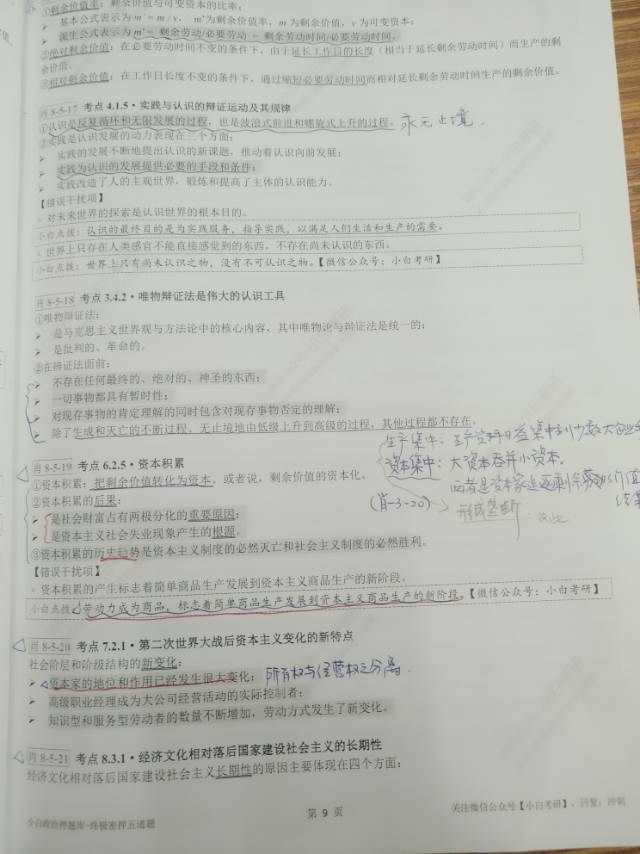 ①剩余价值率：剩余价值与可变资本的比率；
➢ 基本公式表示为 m'= m / v， m'为剩余价值率，m 为剩余价值，v 为可变资本；
➢ 派生公式表示为 m'= 剩余劳动/必要劳动 = 剩余劳动时间/必要劳动时间。
②绝对剩余价值：在必要劳动时间不变的条件下，由于延长工作日的长度（相当于延长剩余劳动时间）而生产的剩
余价值。
③相对剩余价值：在工作日长度不变的条件下，通过缩短必要劳动时间而相对延长剩余劳动时间生产的剩余价值。
肖 8-5-17 考点 4.1.5・实践与认识的辩证运动及其规律
①认识是反复循环和无限发展的过程，也是波浪式前进和螺旋式上升的过程。永无止境.
②实践是认识发展的动力表现在三个方面：
➢ 实践的发展不断地提出认识的新课题，推动着认识向前发展；
➢ 实践为认识的发展提供必要的手段和条件；
➢ 实践改造了人的主观世界，锻炼和提高了主体的认识能力。
【错误干扰项】
◦ 对未来世界的探索是认识世界的根本目的。
小白点拨：认识的最终目的是为实践服务，指导实践，以满足人们生活和生产的需要。
◦ 世界上只存在人类感官不能直接感觉到的东西，不存在尚未认识的东西。
小白点拨：世界上只有尚未认识之物，没有不可认识之物。【微信公众号：小白考研】
肖 8-5-18 考点 3.4.2・唯物辩证法是伟大的认识工具
①唯物辩证法：
➢ 是马克思主义世界观与方法论中的核心内容，其中唯物论与辩证法是统一的；
➢ 是批判的、革命的。
②在辩证法面前：
➢ 不存在任何最终的、绝对的、神圣的东西；
➢ 一切事物都具有暂时性；
➢ 对现存事物的肯定理解的同时包含对现存事物否定的理解；
➢ 除了生成和灭亡的不断过程、无止境地由低级上升到高级的过程，其他过程都不存在。
生产集中：生产资料日益集中到少数大企业
肖 8-5-19 考点 6.2.5・资本积累
资本集中：大资本吞并小资本。
①资本积累：把剩余价值转化为资本，或者说，剩余价值的资本化。
两者是资本家追逐剩余价值
②资本积累的后果：
(肖-3-20) 形成垄断
➢ 是社会财富占有两极分化的重要原因；
➢ 是资本主义社会失业现象产生的根源。
③资本积累的历史趋势是资本主义制度的必然灭亡和社会主义制度的必然胜利。
【错误干扰项】
◦ 资本积累的产生标志着简单商品生产发展到资本主义商品生产的新阶段。
小白点拨：劳动力成为商品，标志着简单商品生产发展到资本主义商品生产的新阶段。【微信公众号：小白考研】
肖 8-5-20 考点 7.2.1・第二次世界大战后资本主义变化的新特点
社会阶层和阶级结构的新变化：
➢ 资本家的地位和作用已经发生很大变化；所有权与经营权已分离.
➢ 高级职业经理成为大公司经营活动的实际控制者；
➢ 知识型和服务型劳动者的数量不断增加，劳动方式发生了新变化。
肖 8-5-21 考点 8.3.1・经济文化相对落后国家建设社会主义的长期性
经济文化相对落后国家建设社会主义长期性的原因主要体现在四个方面：
小白政治押题库-终极密押五道题
第 9 页
关注微信公众号【小白考研】，回复：冲刺